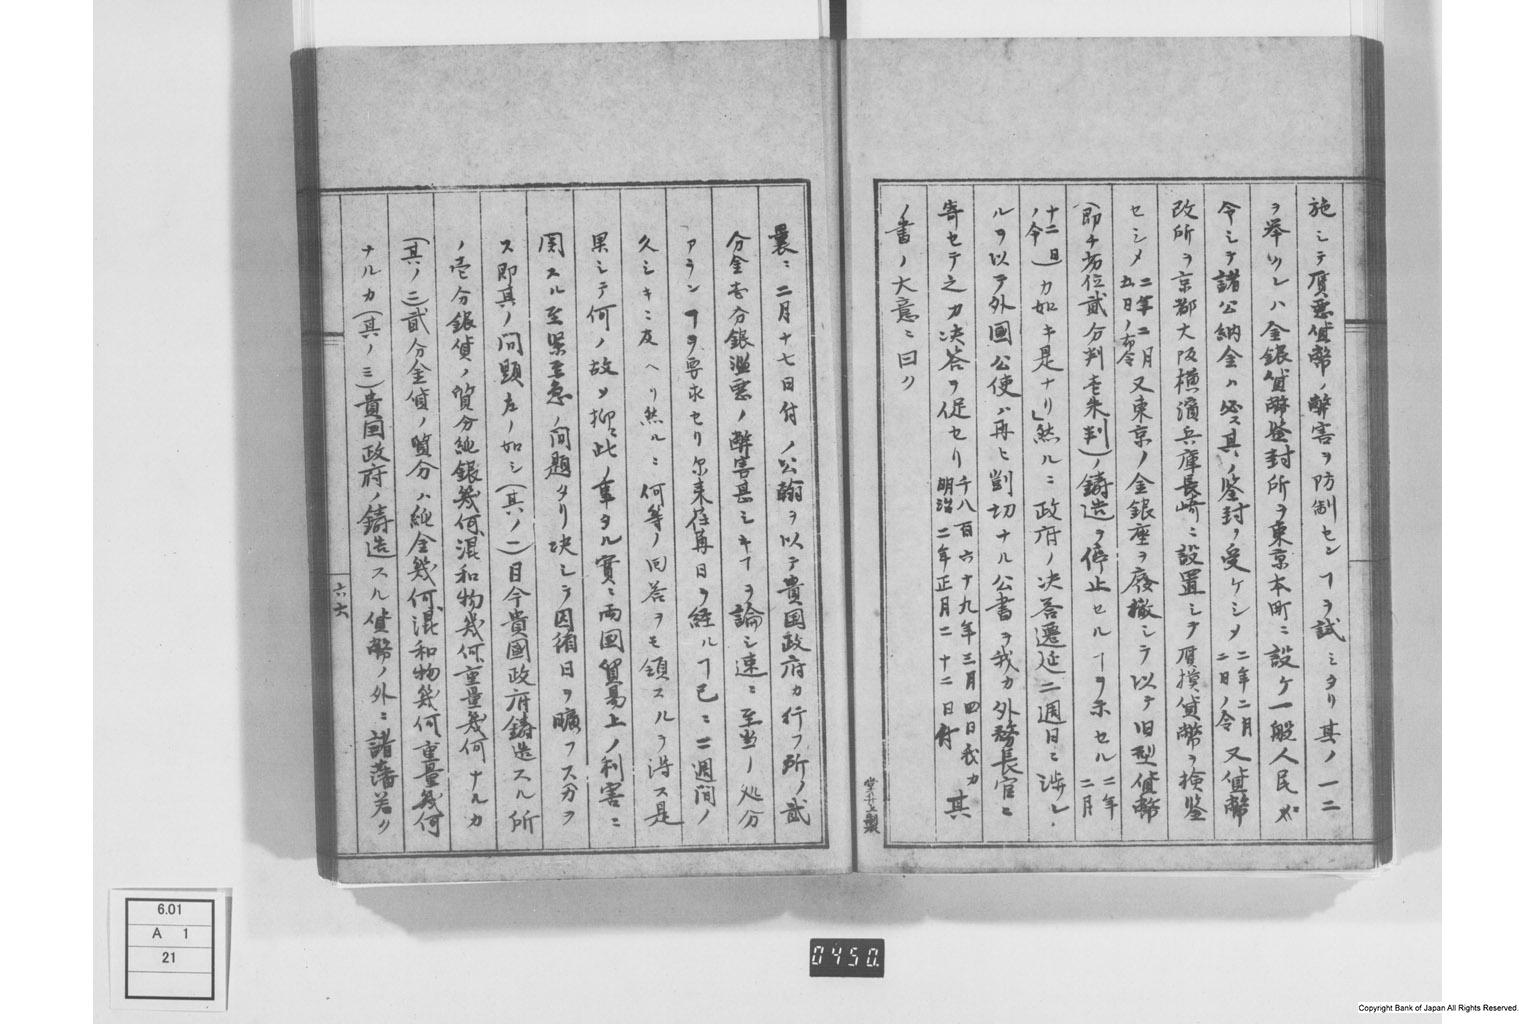 施シテ贋悪貨幣ノ弊害ヲ防制センヿヲ試ミタリ其ノ一二
ヲ挙クレハ金銀貨幣鑒封所ヲ東京本町ニ設ケ一般人民ニ
令シテ諸公納金ハ必ス其ノ鑒封ヲ受ケシメ二年二月二日ノ令又貨幣
改所ヲ京都大阪横濱兵庫長崎ニ設置シテ贋摸貨幣ヲ検鑒
セシメ二年二月五日ノ布令又東京ノ金銀座ヲ廢撤シテ以テ旧型貨幣
(即チ劣位貳分判壱朱判)ノ鋳造ヲ停止セルヿヲ示セル二年二月
十二日ノ令)カ如キ是ナリ」然ルニ政府ノ決荅遷延二週日ニ渉レ
ルヲ以テ外國公使ハ再ヒ剴切ナル公書ヲ我カ外務長官ニ
寄セテ之カ決答ヲ促セリ千八百六十九年三月四日我カ明治二年正月二十二日付其
ノ書ノ大意ニ曰ク
堂井上製
曩ニ二月十七日付ノ公翰ヲ以テ貴国政府カ行フ所ノ貳
分金壱分銀濫悪ノ弊害甚シキヿヲ論シ速ニ至当ノ処分
アランヿヲ要求セリ尓来荏苒日ヲ経ルヿ已ニ二週間ノ
久シキニ及ヘリ然ルニ何等ノ回答ヲモ領スルヲ得ス是
果シテ何ノ故ソ抑ニ此ノ事タル實ニ両国貿易上ノ利害ニ
関スル至緊至急ノ问題タリ决シテ因循日ヲ曠フス可ラ
ス即其ノ问題左ノ如シ(其ノ一)目今貴國政府鋳造スル所
ノ壱分銀貨ノ質分純銀幾何混和物幾何重量幾何ナルカ
(其ノ二)貳分金貨ノ質分ハ純金幾何混和物幾何重量幾何
ナルカ(其ノ三)貴国政府ノ鋳造スル貨幣ノ外ニ諸藩若ク
六六
6.01
A 1
21
0450.
Copyright Bank of Japan All Rights Reserved.